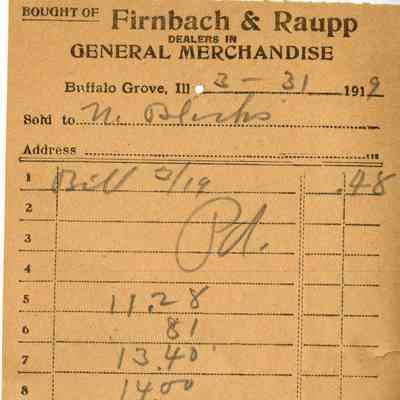 BOUGHT OF Firnbach & Raupp
DEALERS IN
GENERAL MERCHANDISE
Buffalo Grove, Ill 3 - 31 1919
Sold to N.
Address
1 Bill /19 .48
2 Pd.
3
4
5 11.28
6 81
7 13.40
8 1400